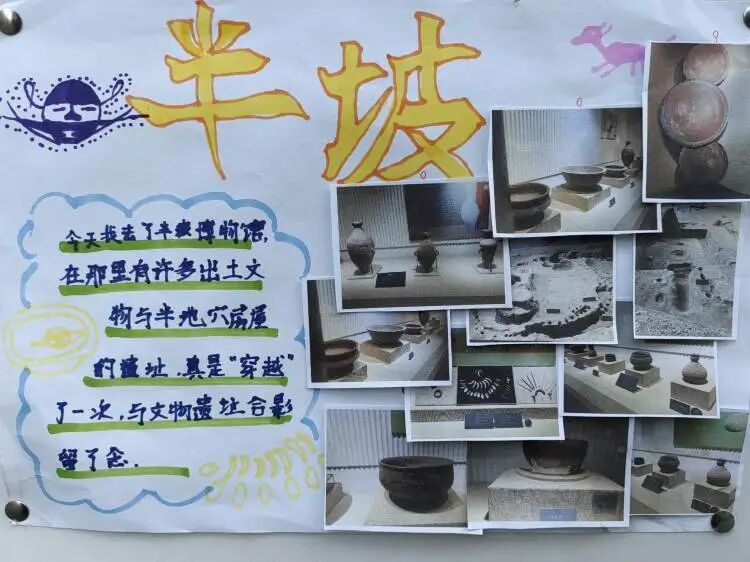 半坡
今天我去了半坡博物馆，
在那里有许多出土文
物与半地穴房屋
的遗址，真是“穿越”
了一次，与文物遗址合影
留了念．